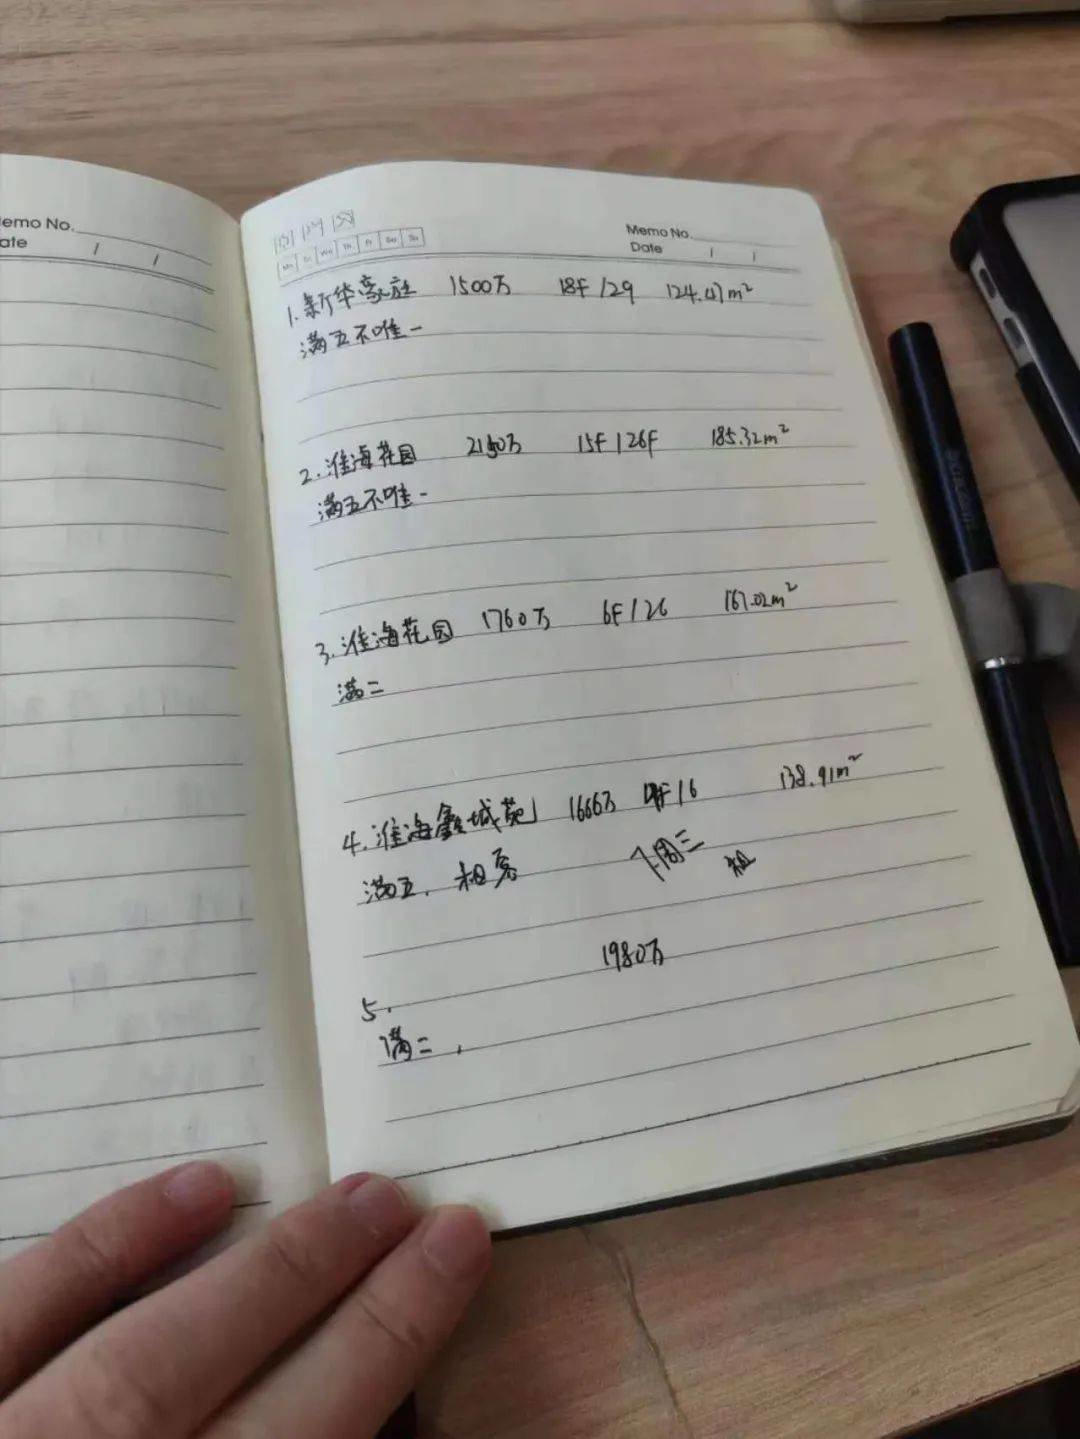 emo No.
ate / /
Memo No.
Mo Tu We Th Fr Sa Su
Date / /
1. 新华豪庭 1500万 18F/29 124.47m²
满五不唯一
2. 淮海花园 2150万 15F/26F 185.32m²
满五不唯一
3. 淮海花园 1760万 6F/26 167.02m²
满二
4. 淮海鑫城苑 1666万 F/6 138.91m²
满五. 租客 下周三 租
1980万
5.
满二,